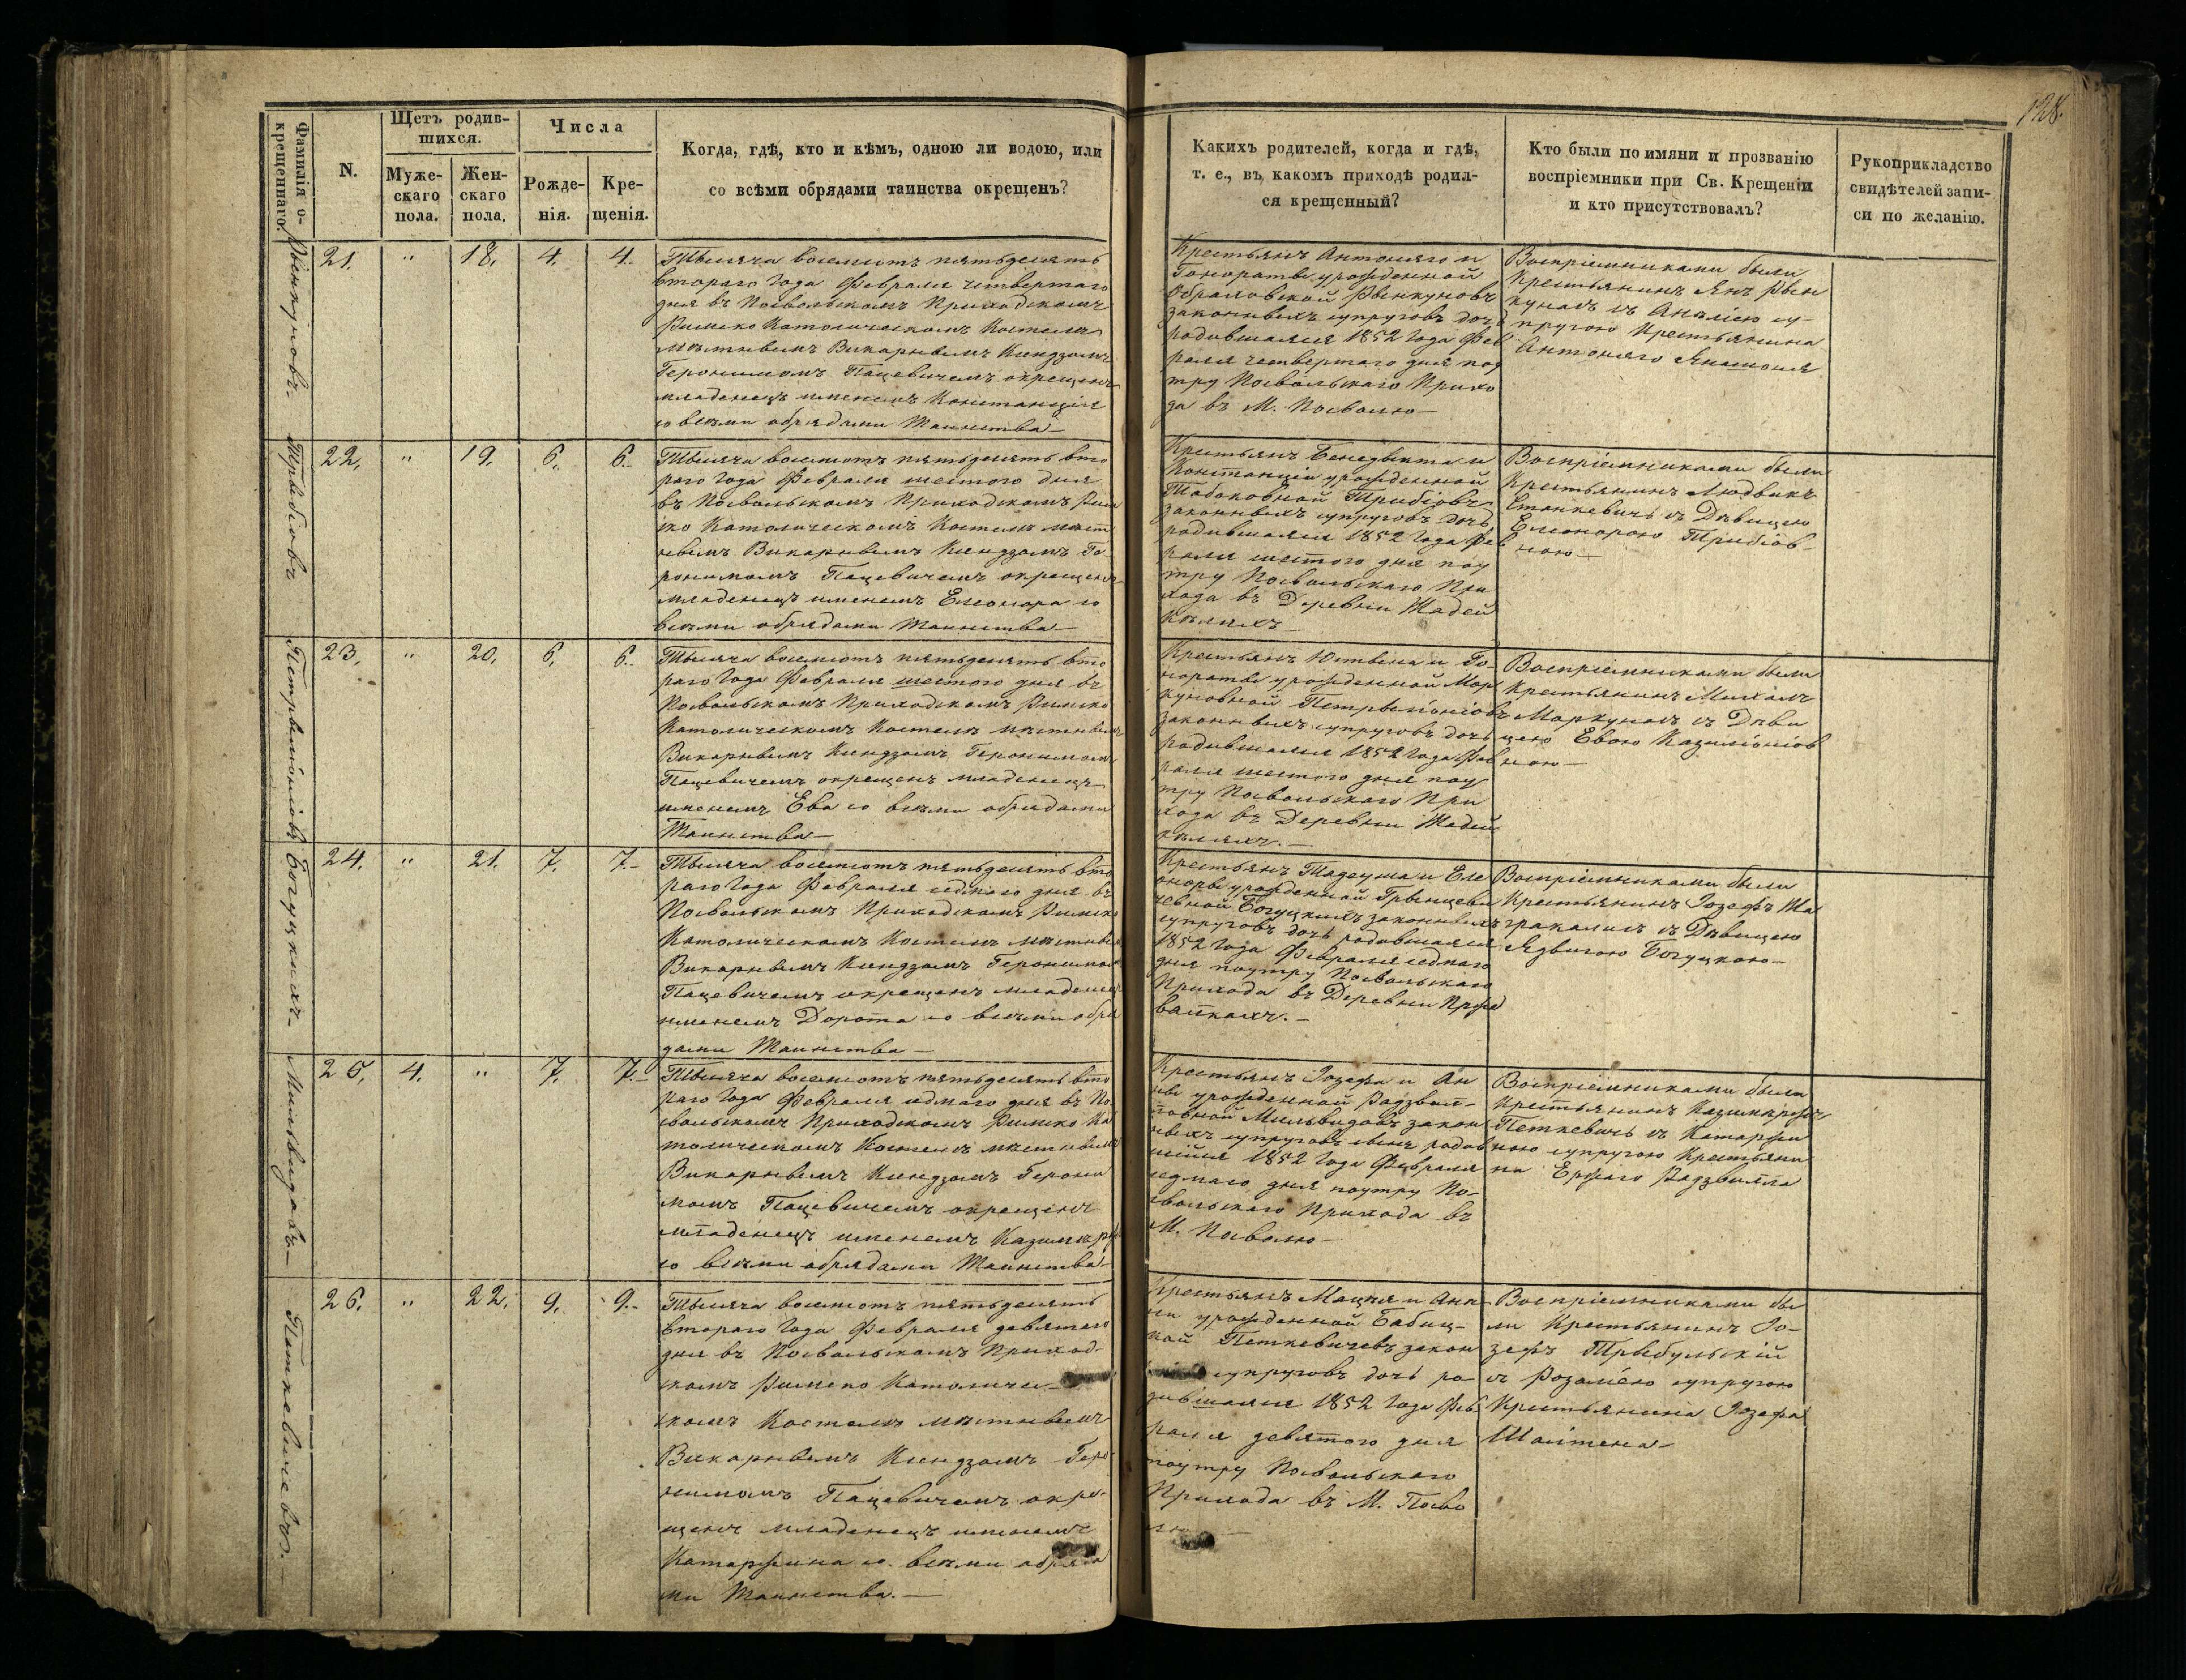 128.
Фамилія о-
крещеннаго.
N.
Щетъ родив-
шихся.
Муже-
скаго
пола.
Жен-
скаго
пола.
Числа
Рожде-
нія.
Кре-
щенія.
Когда, гдѣ, кто и кѣмъ, одною ли водою, или
со всѣми обрядами таинства окрещенъ?
Какихъ родителей, когда и гдѣ,
т. е., въ какомъ приходѣ родил-
ся крещенный?
Кто были по имяни и прозванію
воспріемники при Св. Крещеніи
и кто присутствовалъ?
Рукоприкладство
свидѣтелей запи-
си по желанію.
21. " 18. 4. 4.
Тысяча восемсотъ пятьдесять
втораго Года Февраля четвертаго
дня въ Посвольскомъ Приходскомъ
Римско Католическомъ Костелѣ
мѣстнымъ Викарнымъ Ксендзомъ
Геронимомъ Пацевичемъ окрещенъ
младенецъ именемъ Констанція
со всѣми обрядами Таинства—
Крестьянъ Антонаго и
Гонораты урожденной
законныхъ супруговъ дочь
родившаяся 1852 Года Фев
раля четвертаго дня поу
тру Посвольскаго Прихо
да въ М. Посволю—
Воспріемниками были
Крестьянинъ Янъ Рын
кунасъ съ су-
пругою Крестьянина
Антонаго
Трибіовъ
22. " 19. 6. 6.
Тысяча восемсотъ пятьдесять вто
раго Года Февраля шестого дня
въ Посвольскомъ Приходскомъ Рим
ско Католическомъ Костелѣ мѣст
нымъ Викарнымъ Ксендзомъ Ге
ронимомъ Пацевичемъ окрещенъ
младенецъ именемъ Елеонора со
всѣми обрядами Таинства—
Крестьянъ Бенедыкта и
Констанціи урожденной
Трибіовъ
законныхъ супруговъ дочь
родившаяся 1852 Года Фев
раля шестого дня поу
тру Посвольскаго При
хода въ Деревни Жадей
кѣляхъ
Воспріемниками были
Крестьянинъ Людвикъ
Станкевичъ съ Дѣвицею
Елеонорою Трибіов-
ною—
23. " 20. 6. 6.
Тысяча восемсотъ пятьдесять вто
раго Года Февраля шестого дня въ
Посвольскомъ Приходскомъ Римско
Католическомъ Костелѣ мѣстнымъ
Викарнымъ Ксендзомъ Геронимомъ
Пацевичемъ окрещенъ младенецъ
именемъ Ева со всѣми обрядами
Таинства—
Крестьянъ Юстына и Го-
нораты урожденной Мор
куновной
законныхъ супруговъ дочь
родившаяся 1852 Года Фев
раля шестого дня поу
тру Посвольскаго При
хода въ Деревни Жадей
кѣляхъ.—
Воспріемниками были
Крестьянинъ Михалъ
Моркунасъ съ Дѣви
цею Евою
ною—
Богуцкихъ
24. " 21. 7. 7.
Тысяча восемсотъ пятьдесять вто
раго Года Февраля седмаго дня въ
Посвольскомъ Приходскомъ Римско
Католическомъ Костелѣ мѣстнымъ
Викарнымъ Ксендзомъ Геронимомъ
Пацевичемъ окрещенъ младенецъ
именемъ Дорота со всѣми обря
дами Таинства—
Крестьянъ Тадеуша и Еле
оноры урожденной Грынцеви
чевной Богуцкихъ законныхъ
супруговъ дочь родившаяся
1852 Года Февраля седмаго
дня поутру Посвольскаго
Прихода въ Деревни
Воспріемниками были
Крестьянинъ Іозефъ
съ Дѣвицею
Ядвигою Богуцкою—
Мильвидовъ—
25. 4. " 7. 7.
Тысяча восемсотъ пятьдесять вто
раго Года Февраля седмаго дня въ По
свольскомъ Приходскомъ Римско Ка
толическомъ Костелѣ мѣстнымъ
Викарнымъ Ксендзомъ Герони
момъ Пацевичемъ окрещенъ
младенецъ именемъ
со всѣми обрядами Таинства
Крестьянъ Іозефа и Ан
ны урожденной Радзвил-
ловной Мильвидовъ закон
ныхъ супруговъ сынъ родив
шійся 1852 Года Февраля
седмаго дня поутру По-
свольскаго Прихода въ
М. Посволю—
Воспріемниками были
Крестьянинъ
Петкевичъ съ Катаржи
ною супругою Крестьяни
на Ержаго Радзвилла
Петкевичевъ.—
26. " 22. 9. 9.
Тысяча восемсотъ пятьдесять
втораго Года Февраля девятаго
дня въ Посвольскомъ Приход-
скомъ Римско Католиче-
скомъ Костелѣ мѣстнымъ
Викарнымъ Ксендзомъ Геро-
нимомъ Пацевичемъ окре-
щенъ младенецъ именемъ
Катаржина со всѣми обряда
ми Таинства.—
Крестьянъ Мацея и Анн
ы урожденной Бабиц-
кой Петкевичевъ закон
супруговъ дочь ро-
дившаяся 1852 Года Фев
раля девятого дня
поутру Посвольскаго
Прихода въ М. Посво
Воспріемниками бы
ли Крестьянинъ Іо-
зефъ Трибульскій
съ Розаліею супругою
Крестьянина Іозефа